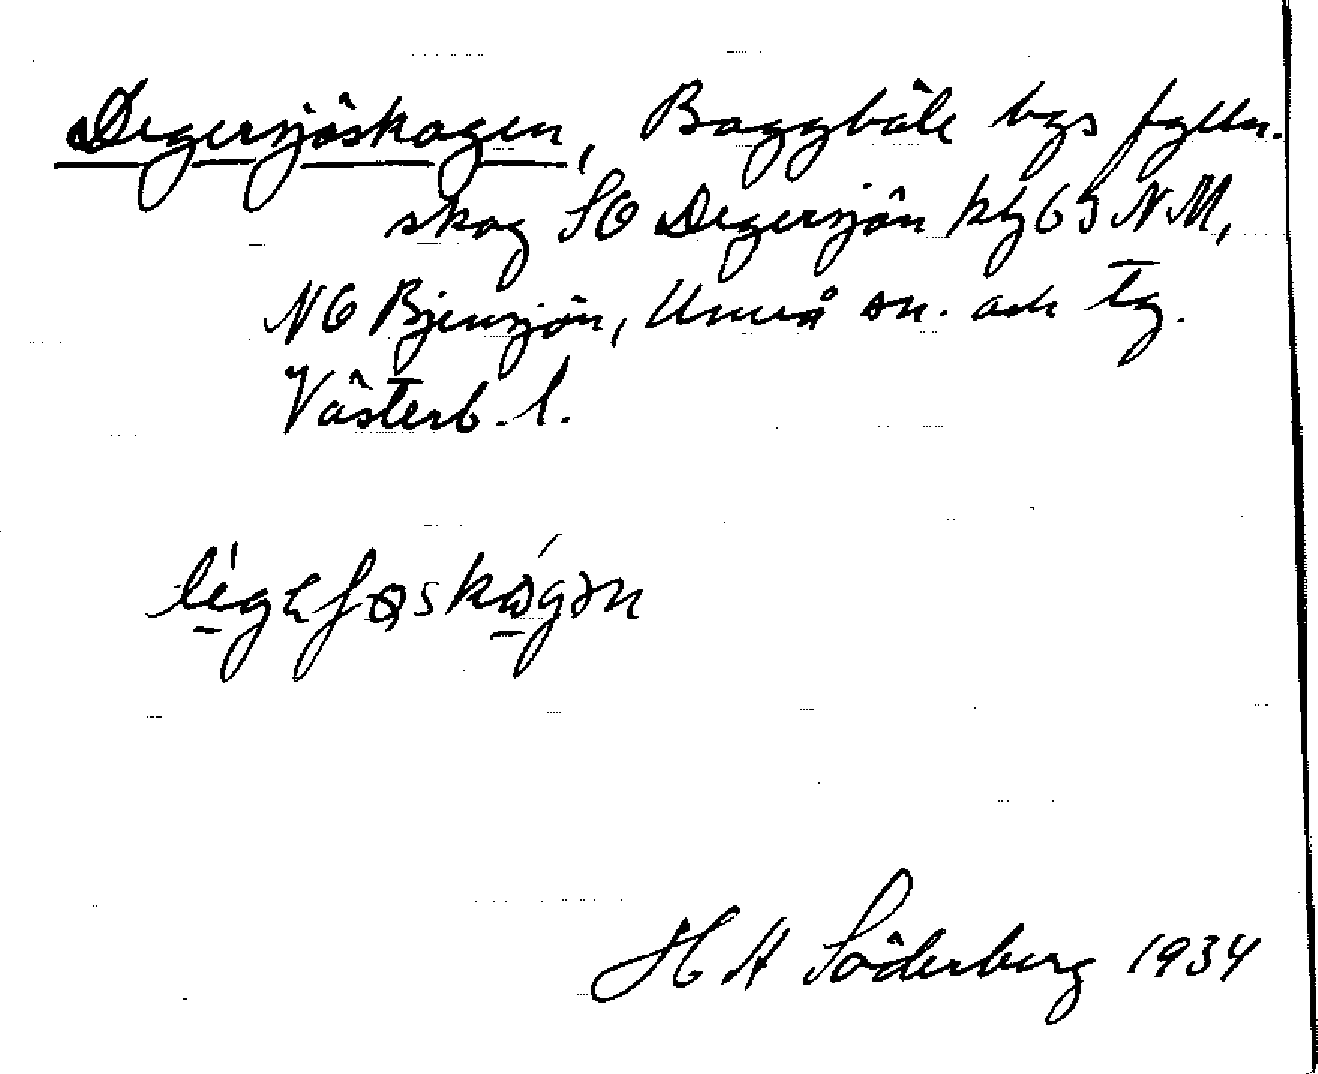 Degersjöskogen, Baggböle bys fylln.
skog SO Degersjön kbl 65 NM,
NO Bjensjön, Umeå sn. och tg.
Västerb. l.
H A Söderberg 1934